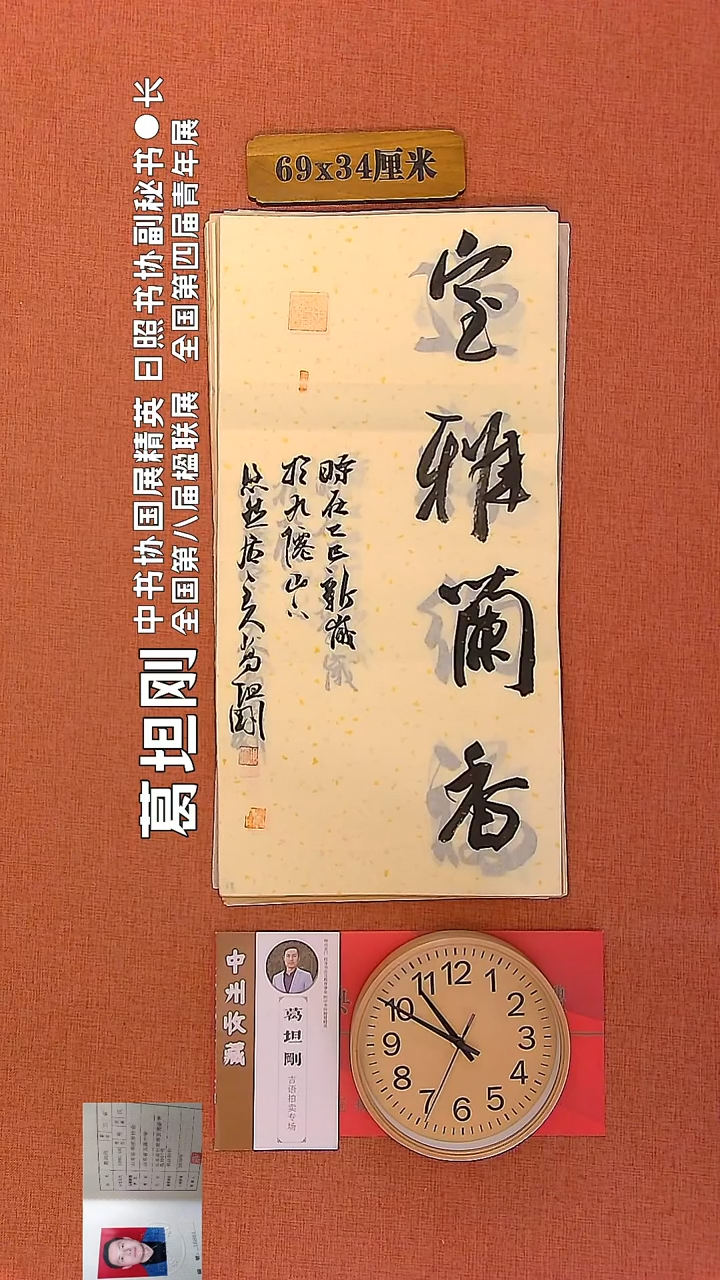 69x34厘米
中书协国展精英 日照书协副秘书●长
全国第八届楹联展 全国第四届青年展
葛坦刚
室雅兰香
時在乙巳新歲
於九僊山下
悠然居主人葛坦剛
中
藏
葛坦剛
吉语拍卖专场
12
1
2
3
4
5
6
7
8
9
10
11